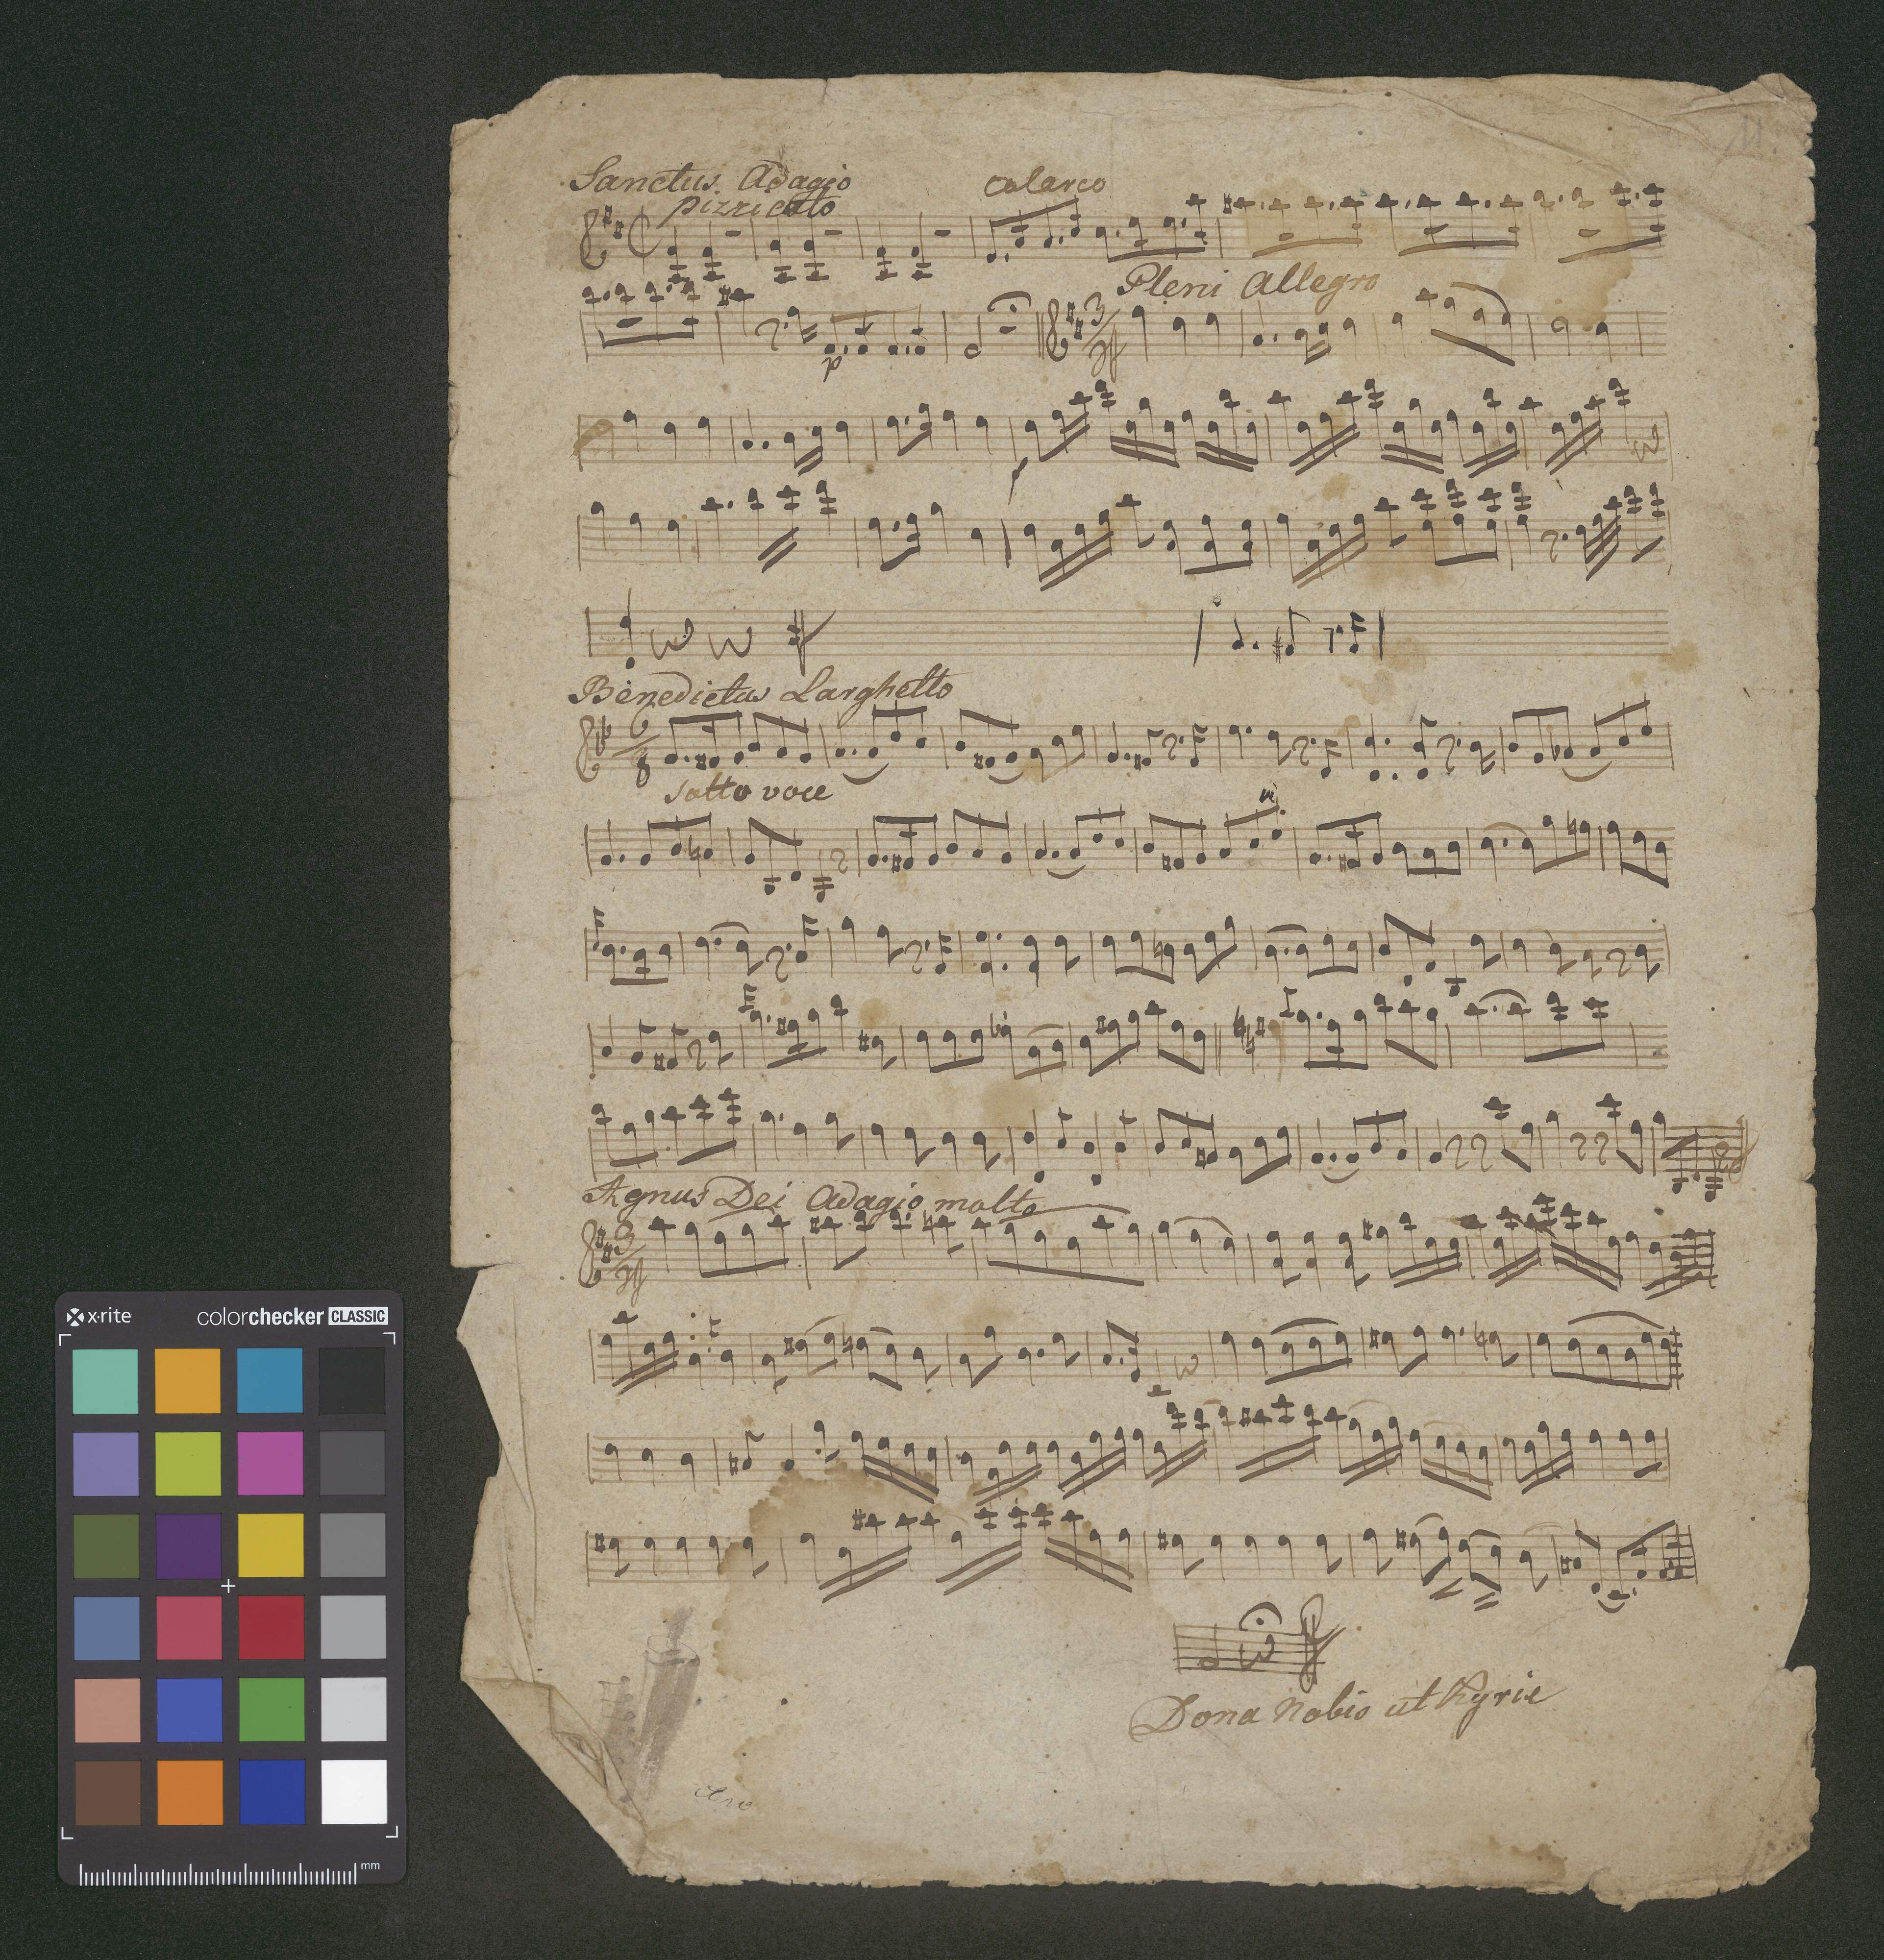 Sanctus. Adagio
pizzicato
colarco
Pleni Allegro
p
Benedictus Larghetto
6
8
sotto voce
Agnus Dei Adagio molto
Dona Nobis ut Kyrie
x-rite
colorchecker CLASSIC
mm